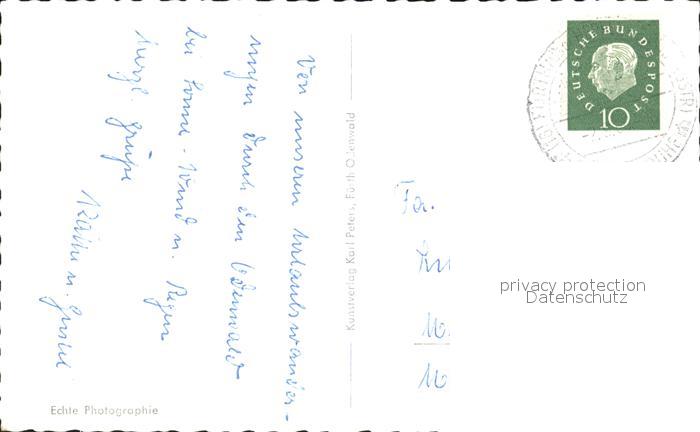 Von unseren Urlaubswander-
ungen durch den Odenwald
bei Sonne - Wind u. Regen
herzl. Grüße
Käthe u. Gustel
Kunstverlag Karl Peters, Fürth Odenwald
Echte Photographie
DEUTSCHE BUNDESPOST
10
Fa.
privacy protection
Datenschutz